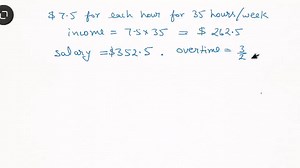 $7.5 for each hour for 35 hours/week
income = 7.5 x 35 = $ 262.5
salary = $352.5 . overtime = 3/2